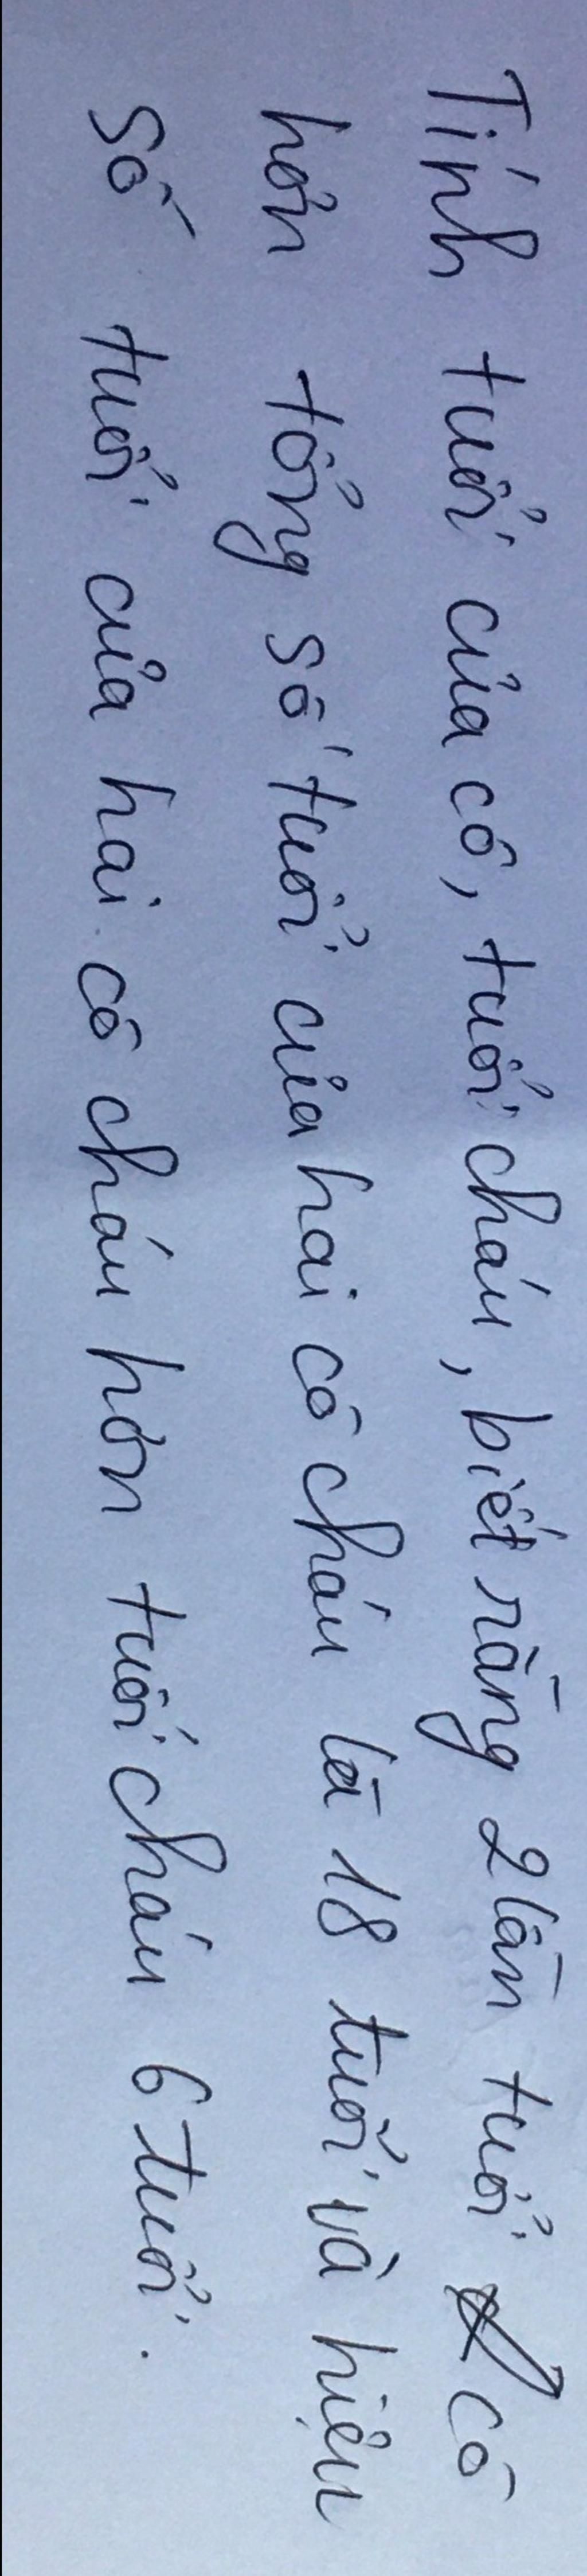 Tính tuổi của cô, tuổi cháu, biết rằng 2 lần tuổi cô
hơn tổng số tuổi của hai cô cháu là 18 tuổi và hiệu
số tuổi của hai cô cháu hơn tuổi cháu 6 tuổi.